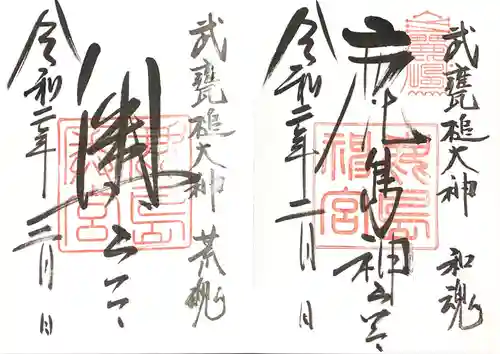 武甕槌大神 和魂
鹿島神宮
令和二年二月 日
武甕槌大神 荒魂
奥宮
鹿島神宮
令和二年二月 日